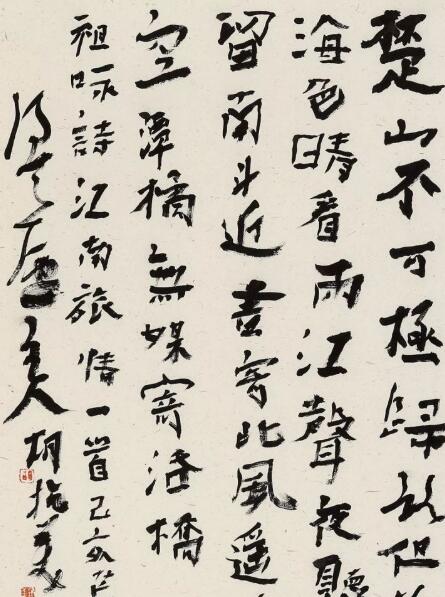 楚山不可極歸路但
海色晴看雨江聲夜聽
留南斗近書寄北風遥
空潭橘無媒寄洛橋
祖咏詩江南旅情一首己亥
主人胡抗美